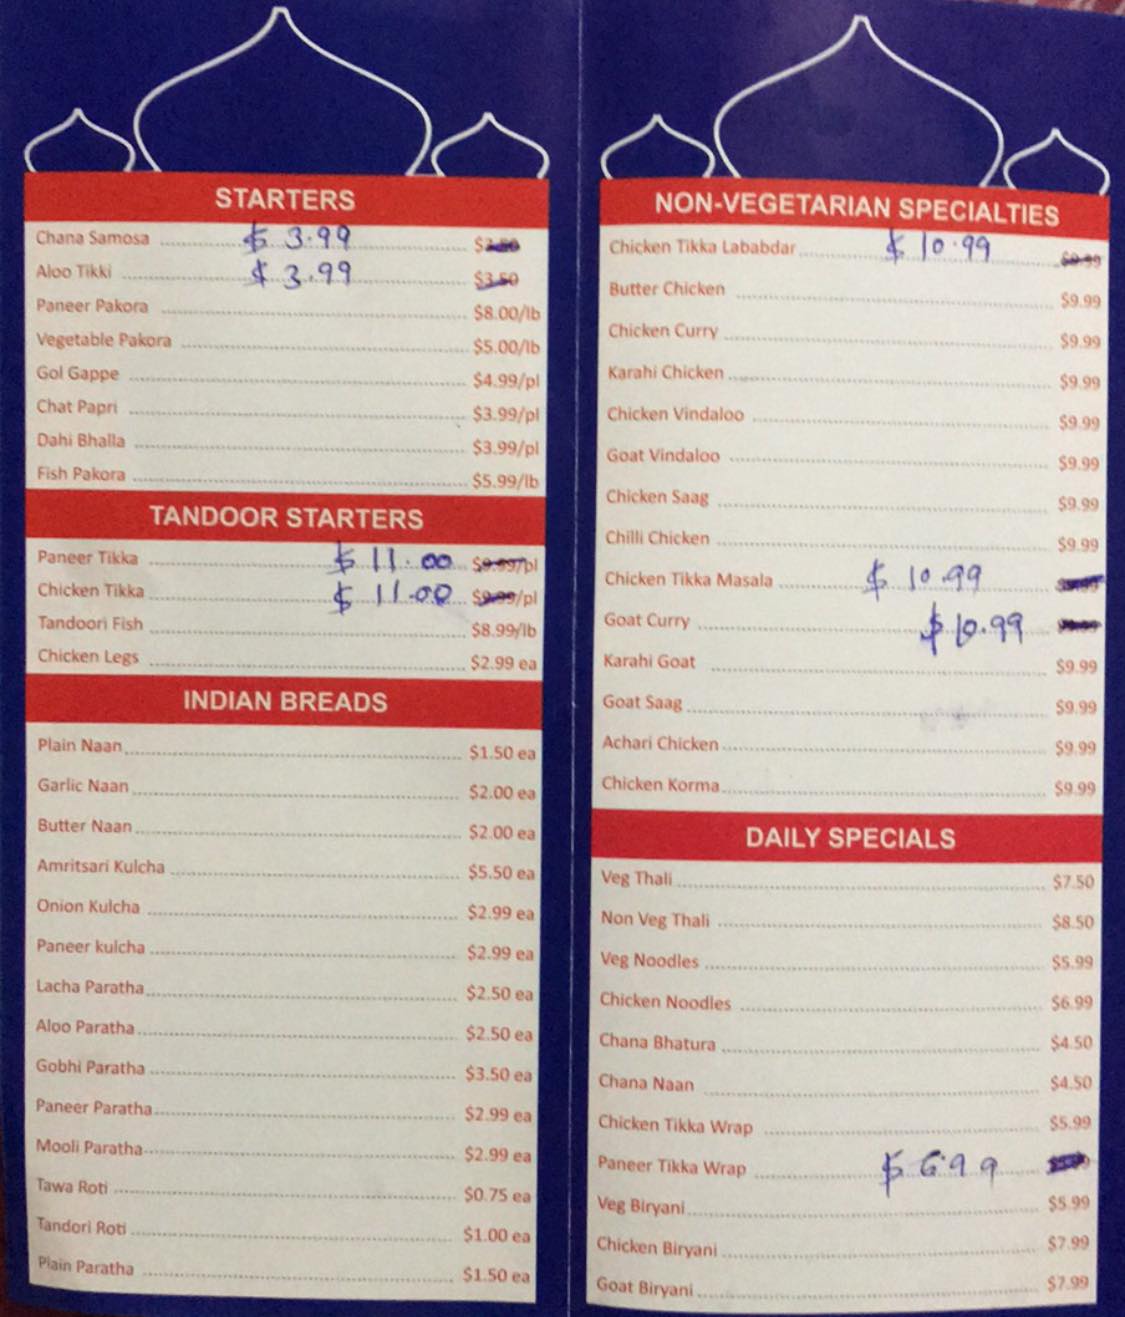 STARTERS
Chana Samosa $ 3.99
Aloo Tikki $ 3.99 $3.50
Paneer Pakora $8.00/lb
Vegetable Pakora $5.00/lb
Gol Gappe $4.99/pl
Chat Papri $3.99/pl
Dahi Bhalla $3.99/pl
Fish Pakora $5.99/lb
TANDOOR STARTERS
Paneer Tikka $ 11.00 $9.99/pl
Chicken Tikka $ 11.00 $9.99/pl
Tandoori Fish $8.99/lb
Chicken Legs $2.99 ea
INDIAN BREADS
Plain Naan $1.50 ea
Garlic Naan $2.00 ea
Butter Naan $2.00 ea
Amritsari Kulcha $5.50 ea
Onion Kulcha $2.99 ea
Paneer kulcha $2.99 ea
Lacha Paratha $2.50 ea
Aloo Paratha $2.50 ea
Gobhi Paratha $3.50 ea
Paneer Paratha $2.99 ea
Mooli Paratha $2.99 ea
Tawa Roti $0.75 ea
Tandori Roti $1.00 ea
Plain Paratha $1.50 ea
NON-VEGETARIAN SPECIALTIES
Chicken Tikka Lababdar $ 10.99 $9.99
Butter Chicken $9.99
Chicken Curry $9.99
Karahi Chicken $9.99
Chicken Vindaloo $9.99
Goat Vindaloo $9.99
Chicken Saag $9.99
Chilli Chicken $9.99
Chicken Tikka Masala $ 10.99
Goat Curry $10.99
Karahi Goat $9.99
Goat Saag $9.99
Achari Chicken $9.99
Chicken Korma $9.99
DAILY SPECIALS
Veg Thali $7.50
Non Veg Thali $8.50
Veg Noodles $5.99
Chicken Noodles $6.99
Chana Bhatura $4.50
Chana Naan $4.50
Chicken Tikka Wrap $5.99
Paneer Tikka Wrap $ 6.99
Veg Biryani $5.99
Chicken Biryani $7.99
Goat Biryani $7.99